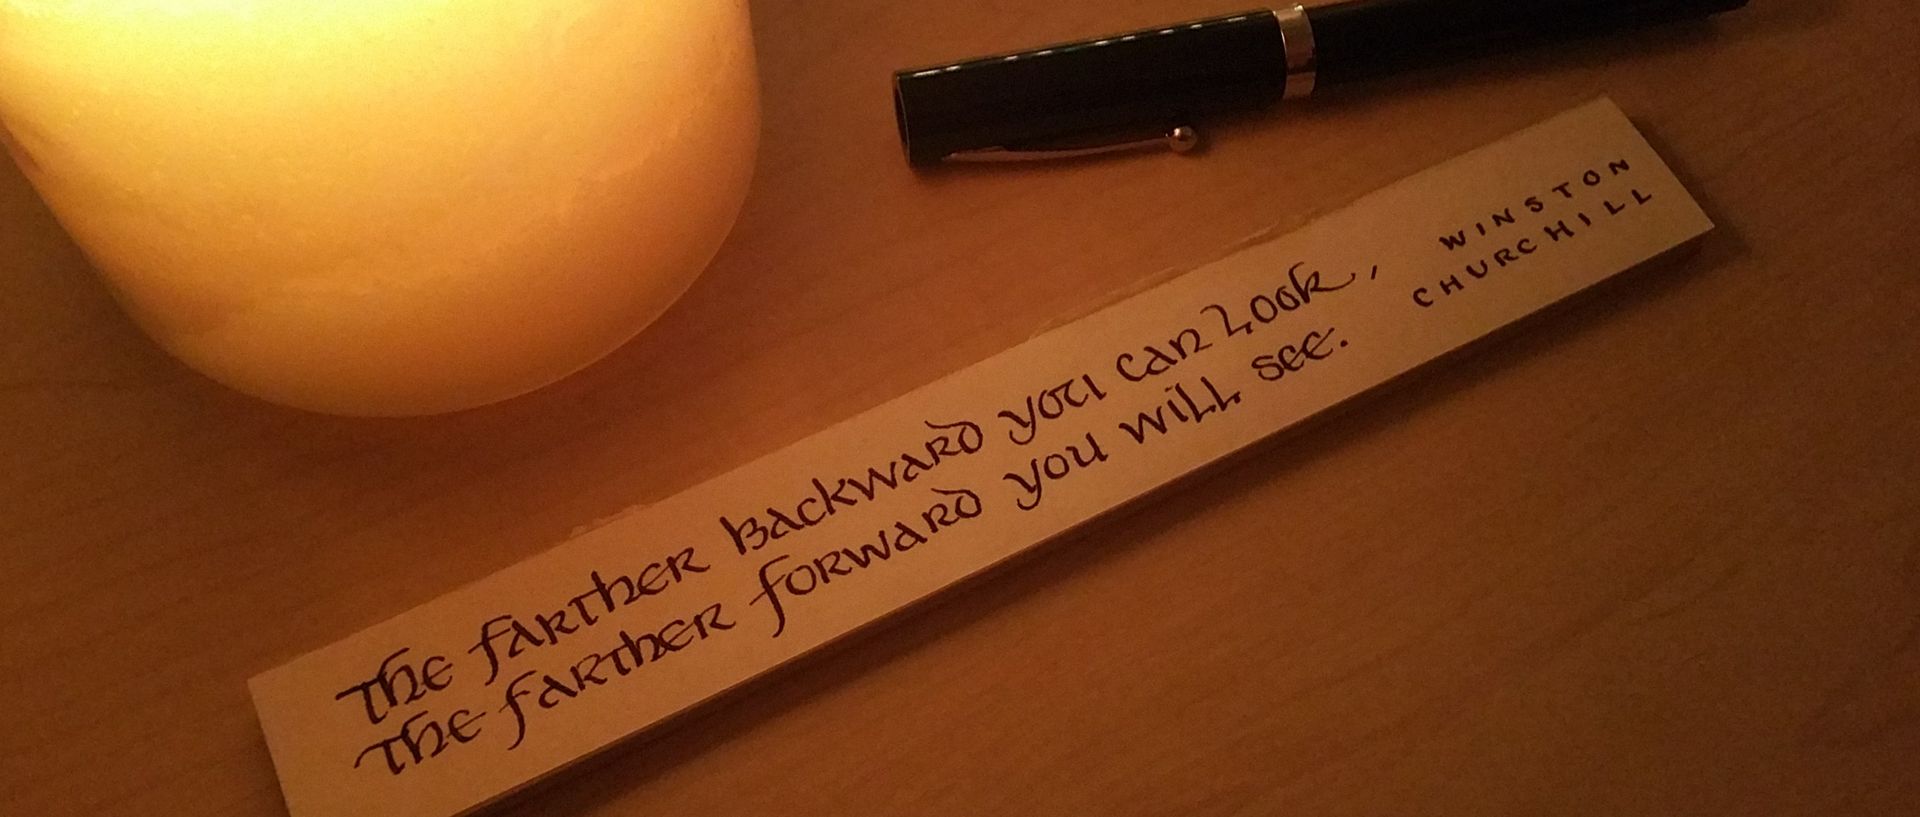 The farther backward you can look,
The farther forward you will see.
WINSTON
CHURCHILL